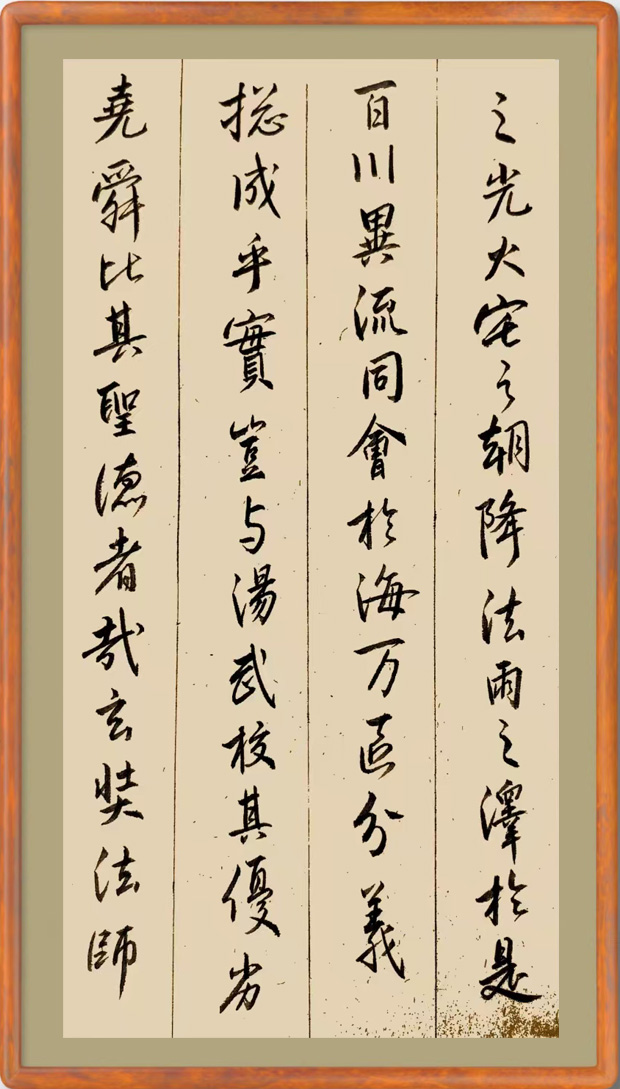 之光火宅之朝降法雨之澤於是
百川異流同會於海万區分義
捴成乎實豈与湯武校其優劣
堯舜比其聖德者哉玄奘法師